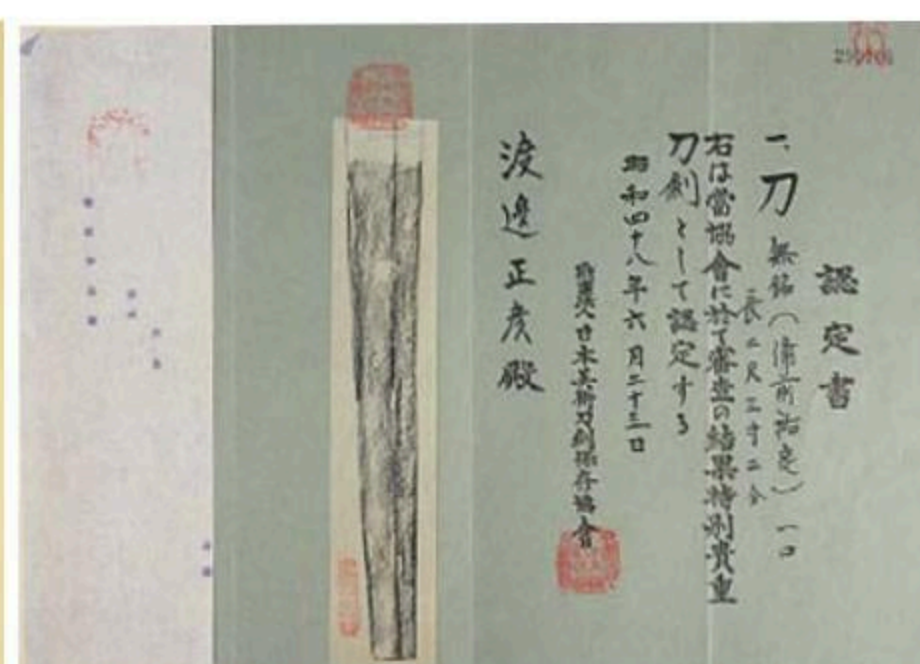 認定書
一、刀 無銘(備前祐定) 一口
長二尺三寸二分
右は當協會に於て審査の結果特別貴重
刀劍として認定する
昭和四十八年六月二十三日
財團法人日本美術刀劍保存協會
渡邊正彦殿